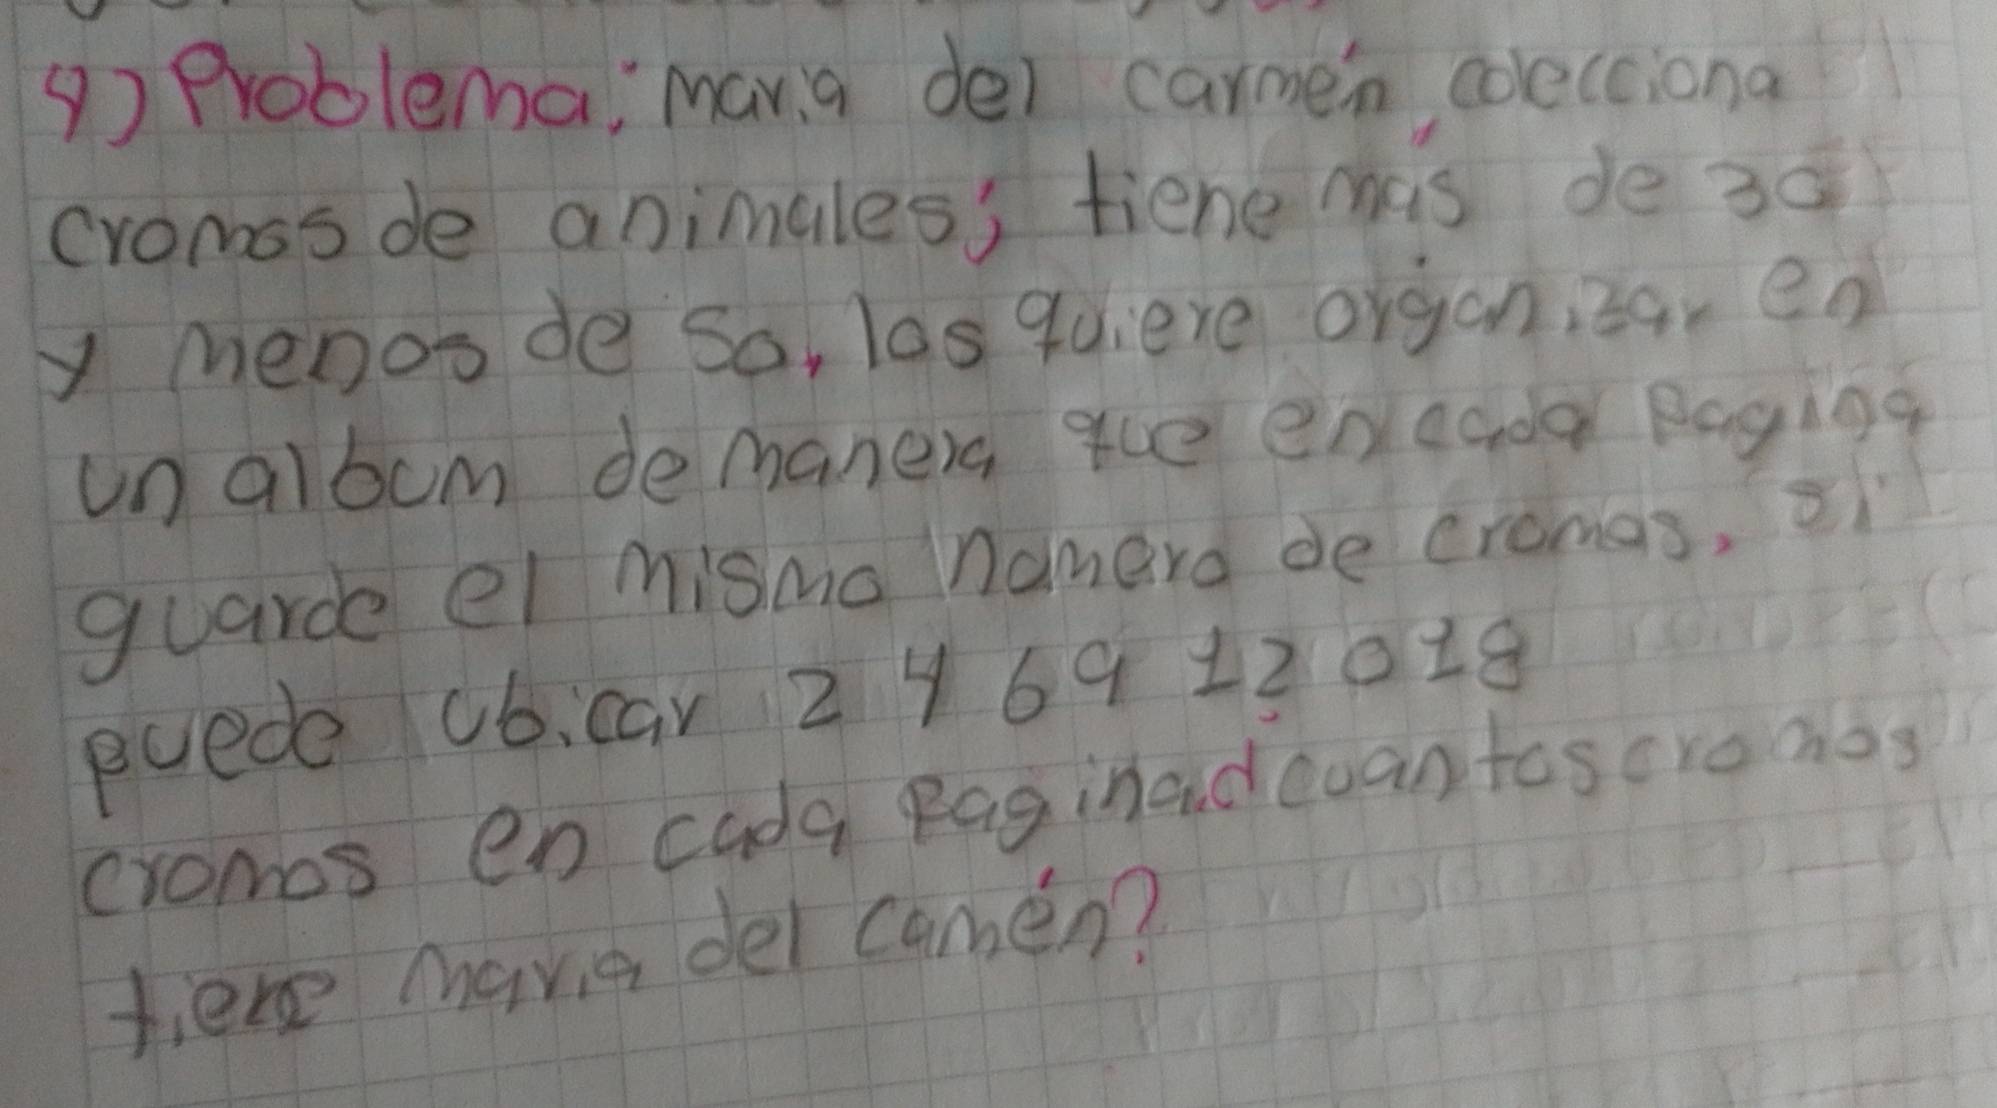 4) Problema: maria del carmén, colecciona
cromos de animales; tiene más de 30
y menos de 50, los quiere organizar en
un album de manera que en cada pagina
guarde el mismo namero de cromos, si
puede ubicar 2 4 6 9 12 o 18
cromos en cada pagina ¿cuantos cromos
tiene maria del camén?